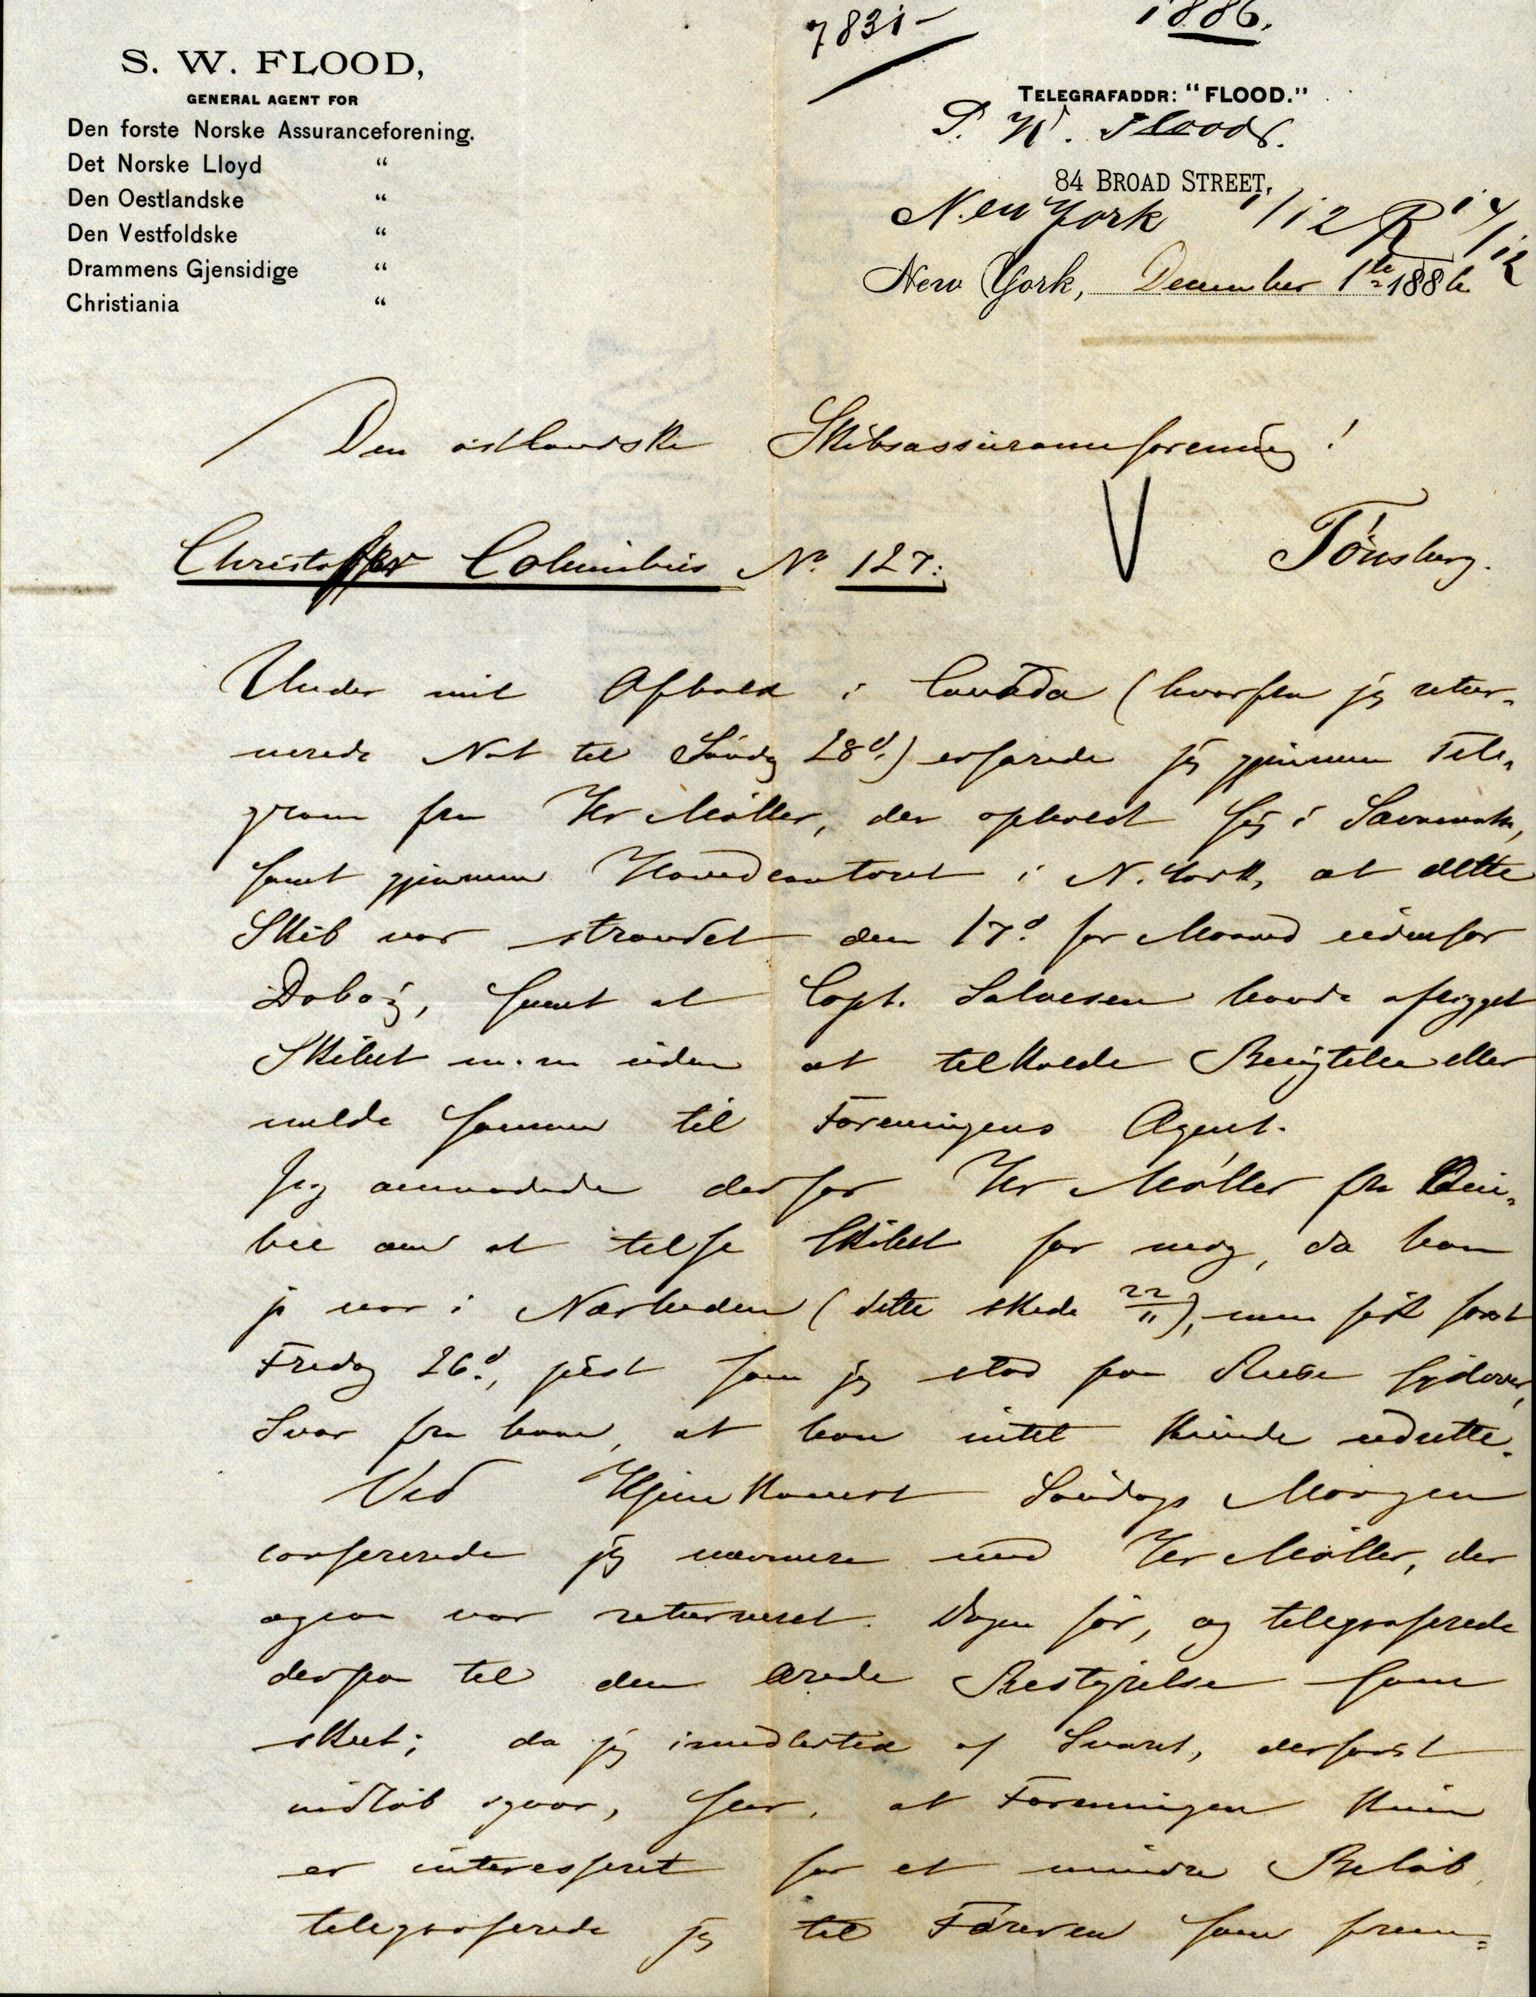 7831-
1886.
S. W. FLOOD,
GENERAL AGENT FOR
Den forste Norske Assuranceforening.
Det Norske Lloyd "
Den Oestlandske "
Den Vestfoldske "
Drammens Gjensidige "
Christiania "
TELEGRAFADDR: "FLOOD."
S. W. Flood.
84 BROAD STREET,
New York 1/12 R 14/12
New York, December 1te 1886
Den østlandske Skibsassuranceforening!
Christoffer Columbus No. 127: Tönsberg.
Under mit Ophold i Canada (hvorfra jeg retur-
nerede Nat til Søndag 28d.) erfarede jeg gjennem Tele-
gram fra Hr Möller, der opholdt sig i Savannah,
samt gjennem Hovedcontoret i N. York, at dette
Skib var strandet den 17d. for Maaned udenfor
Doboy, samt at Capt. Salvesen havde aftrygget
Skibet m.m uden at tilkalde Besigtelse eller
melde samme til Foreningens Agent.
Jeg anmodede derfor Hr Möller fra Que-
bec om at tilse Skibet for meg, da han
jo var i Nærheden (dette skede 22/11), men fik først
Fredag 26d., just som jeg stod paa Reise sydover,
Svar fra ham, at han intet kunde udrette.
Ved Hjemkomst Søndags Morgen
confererede jeg nærmere med Hr Möller, der
ogsaa var returneret Dagen før, og telegraferede
derpaa til den ærede Bestyrelse som
skeet; da jeg imidlertid af Svaret, der først
indløb igaar, seer, at Foreningen kun
er interesseret for et mindre Beløb,
telegraferede jeg til Føreren som frem=